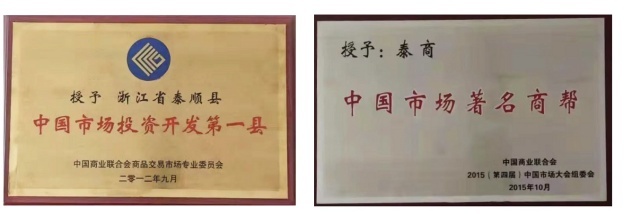 授予 浙江省泰顺县
中国市场投资开发第一县
中国商业联合会商品交易市场专业委员会
二零一二年九月
授予：泰商
中国市场著名商帮
中国商业联合会
2015（第四届）中国市场大会组委会
2015年10月